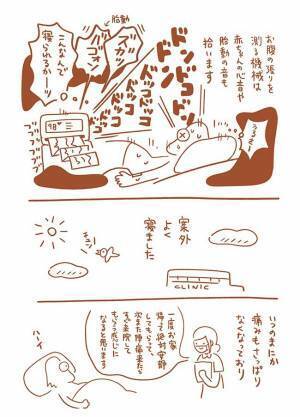 お腹の張りを
測る機械は
赤ちゃんの心音や
胎動の音も
拾います
うるさ…
ドンドコドン
ドン
ドッコドッコ
ドッコドッコ
胎動
ブカッ
ボゴォ
こんなんで
寝られるかーッ
98
案外
よく
寝ました
チュン
CLINIC
いつのまにか
痛みもさっぱり
なくなっており
一度お家
帰って絶対安静
してもらって、
次また陣痛来たら
即入院して
もらう感じに
なると思います
ハーイ